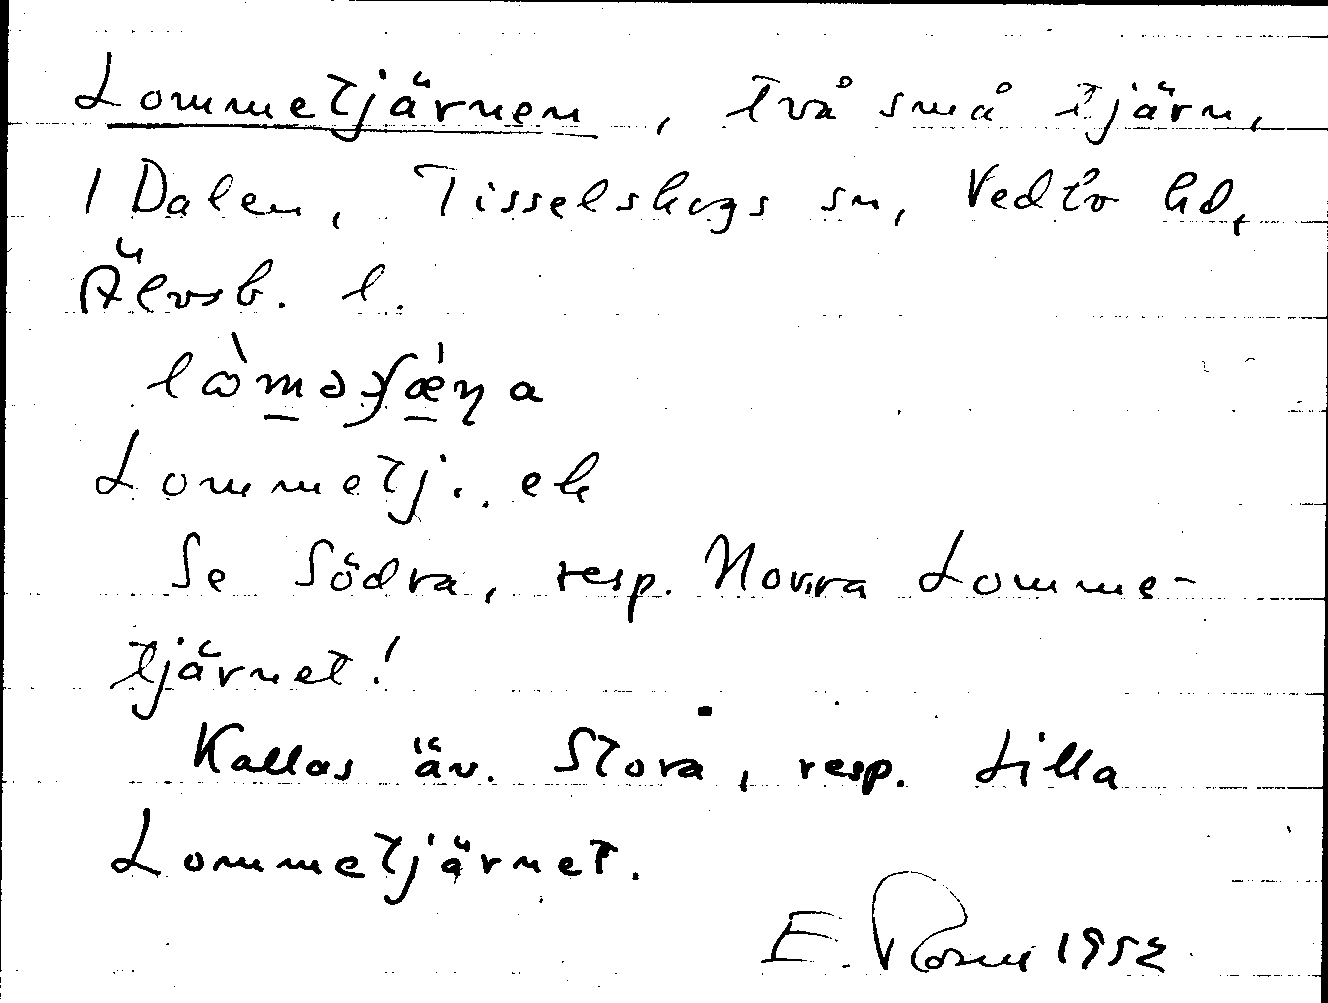 Lommetjärnen, två små tjärn,
1 Dalen, Tisselskogs sn, Vedbo hd,
Älvsb. l.
Lommetj. ek
Se Södra, resp. Norra Lomme-
tjärnet!
Kallas äv. Stora, resp. Lilla
Lommetjärnet.
E. 1952